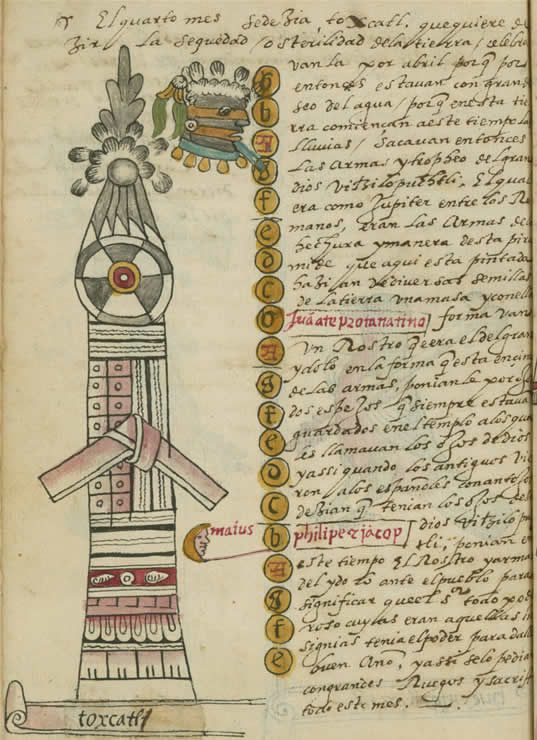 El quarto mes se dezia, toxcatl, que quiere de
zir la sequedad /o sterilidad de la tierra / celebra
van la por abril porq̃ por
entonces estavan con gran de
seo del agua / porq̃ en esta tie
rra comiençan a este tiempo las
lluvias / Sacavan entonces
las armas y tropheo del gran
dios Vitzilopuchtli, El qual
era como Jupiter entre los Ro
manos, eran las Armas de la
hechura y manera desta pira
mide que aqui esta pintada
hazian de diversas semillas
de la tierra una masa y con ella
forma van
Un Rostro q̃ era el del gran
ydolo en la forma q̃ esta encima
de las armas, ponianle por
dos espejos q̃ siempre estava
guardados en el templo a los qua
les llamavan los ojos de dios
y assi quando los antiguos vie
ron a los españoles con anteojos
dezian q̃ tenian los ojos del
dios Vitzilopu
tli, ponian en
este tiempo El Rostro y armas
del ydolo ante el pueblo para
significar que el sr todo pode
roso cuyas eran aquellas in
signias tenia el poder para dalles
buen Año, y assi se lo pedian
con grandes Ruegos y sacrifi
todo este mes.
b
A
g
f
e
d
c
b
A
g
f
e
d
c
b
A
g
f
e
maius
philipe & jacop
toxcatl